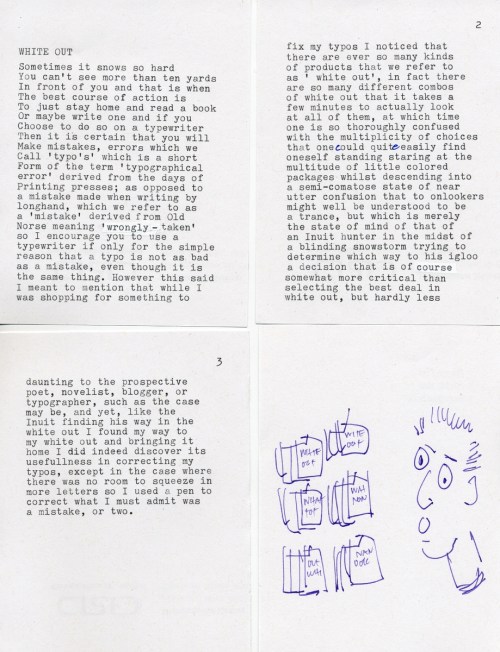 WHITE OUT
Sometimes it snows so hard
You can't see more than ten yards
In front of you and that is when
The best course of action is
To just stay home and read a book
Or maybe write one and if you
Choose to do so on a typewriter
Then it is certain that you will
Make mistakes, errors which we
Call 'typo's' which is a short
Form of the term 'typographical
error' derived from the days of
Printing presses; as opposed to
a mistake made when writing by
longhand, which we refer to as
a 'mistake' derived from Old
Norse meaning 'wrongly-taken'
so I encourage you to use a
typewriter if only for the simple
reason that a typo is not as bad
as a mistake, even though it is
the same thing. However this said
I meant to mention that while I
was shopping for something to
2
fix my typos I noticed that
there are ever so many kinds
of products that we refer to
as ' white out', in fact there
are so many different combos
of white out that it takes a
few minutes to actually look
at all of them, at which time
one is so thoroughly confused
with the multiplicity of choices
that onecould quiteeasily find
oneself standing staring at the
multitude of little colored
packages whilst descending into
a semi-comatose state of near
utter confusion that to onlookers
might well be understood to be
a trance, but which is merely
the state of mind of that of
an Inuit hunter in the midst of
a blinding snowstorm trying to
determine which way to his igloo
a decision that is of course
somewhat more critical than
selecting the best deal in
white out, but hardly less
3
daunting to the prospective
poet, novelist, blogger, or
typographer, such as the case
may be, and yet, like the
Inuit finding his way in the
white out I found my way to
my white out and bringing it
home I did indeed discover its
usefullness in correcting my
typos, except in the case where
there was no room to squeeze in
more letters so I used a pen to
correct what I must admit was
a mistake, or two.
WHITE
OUT
WITE
OUT
OUT